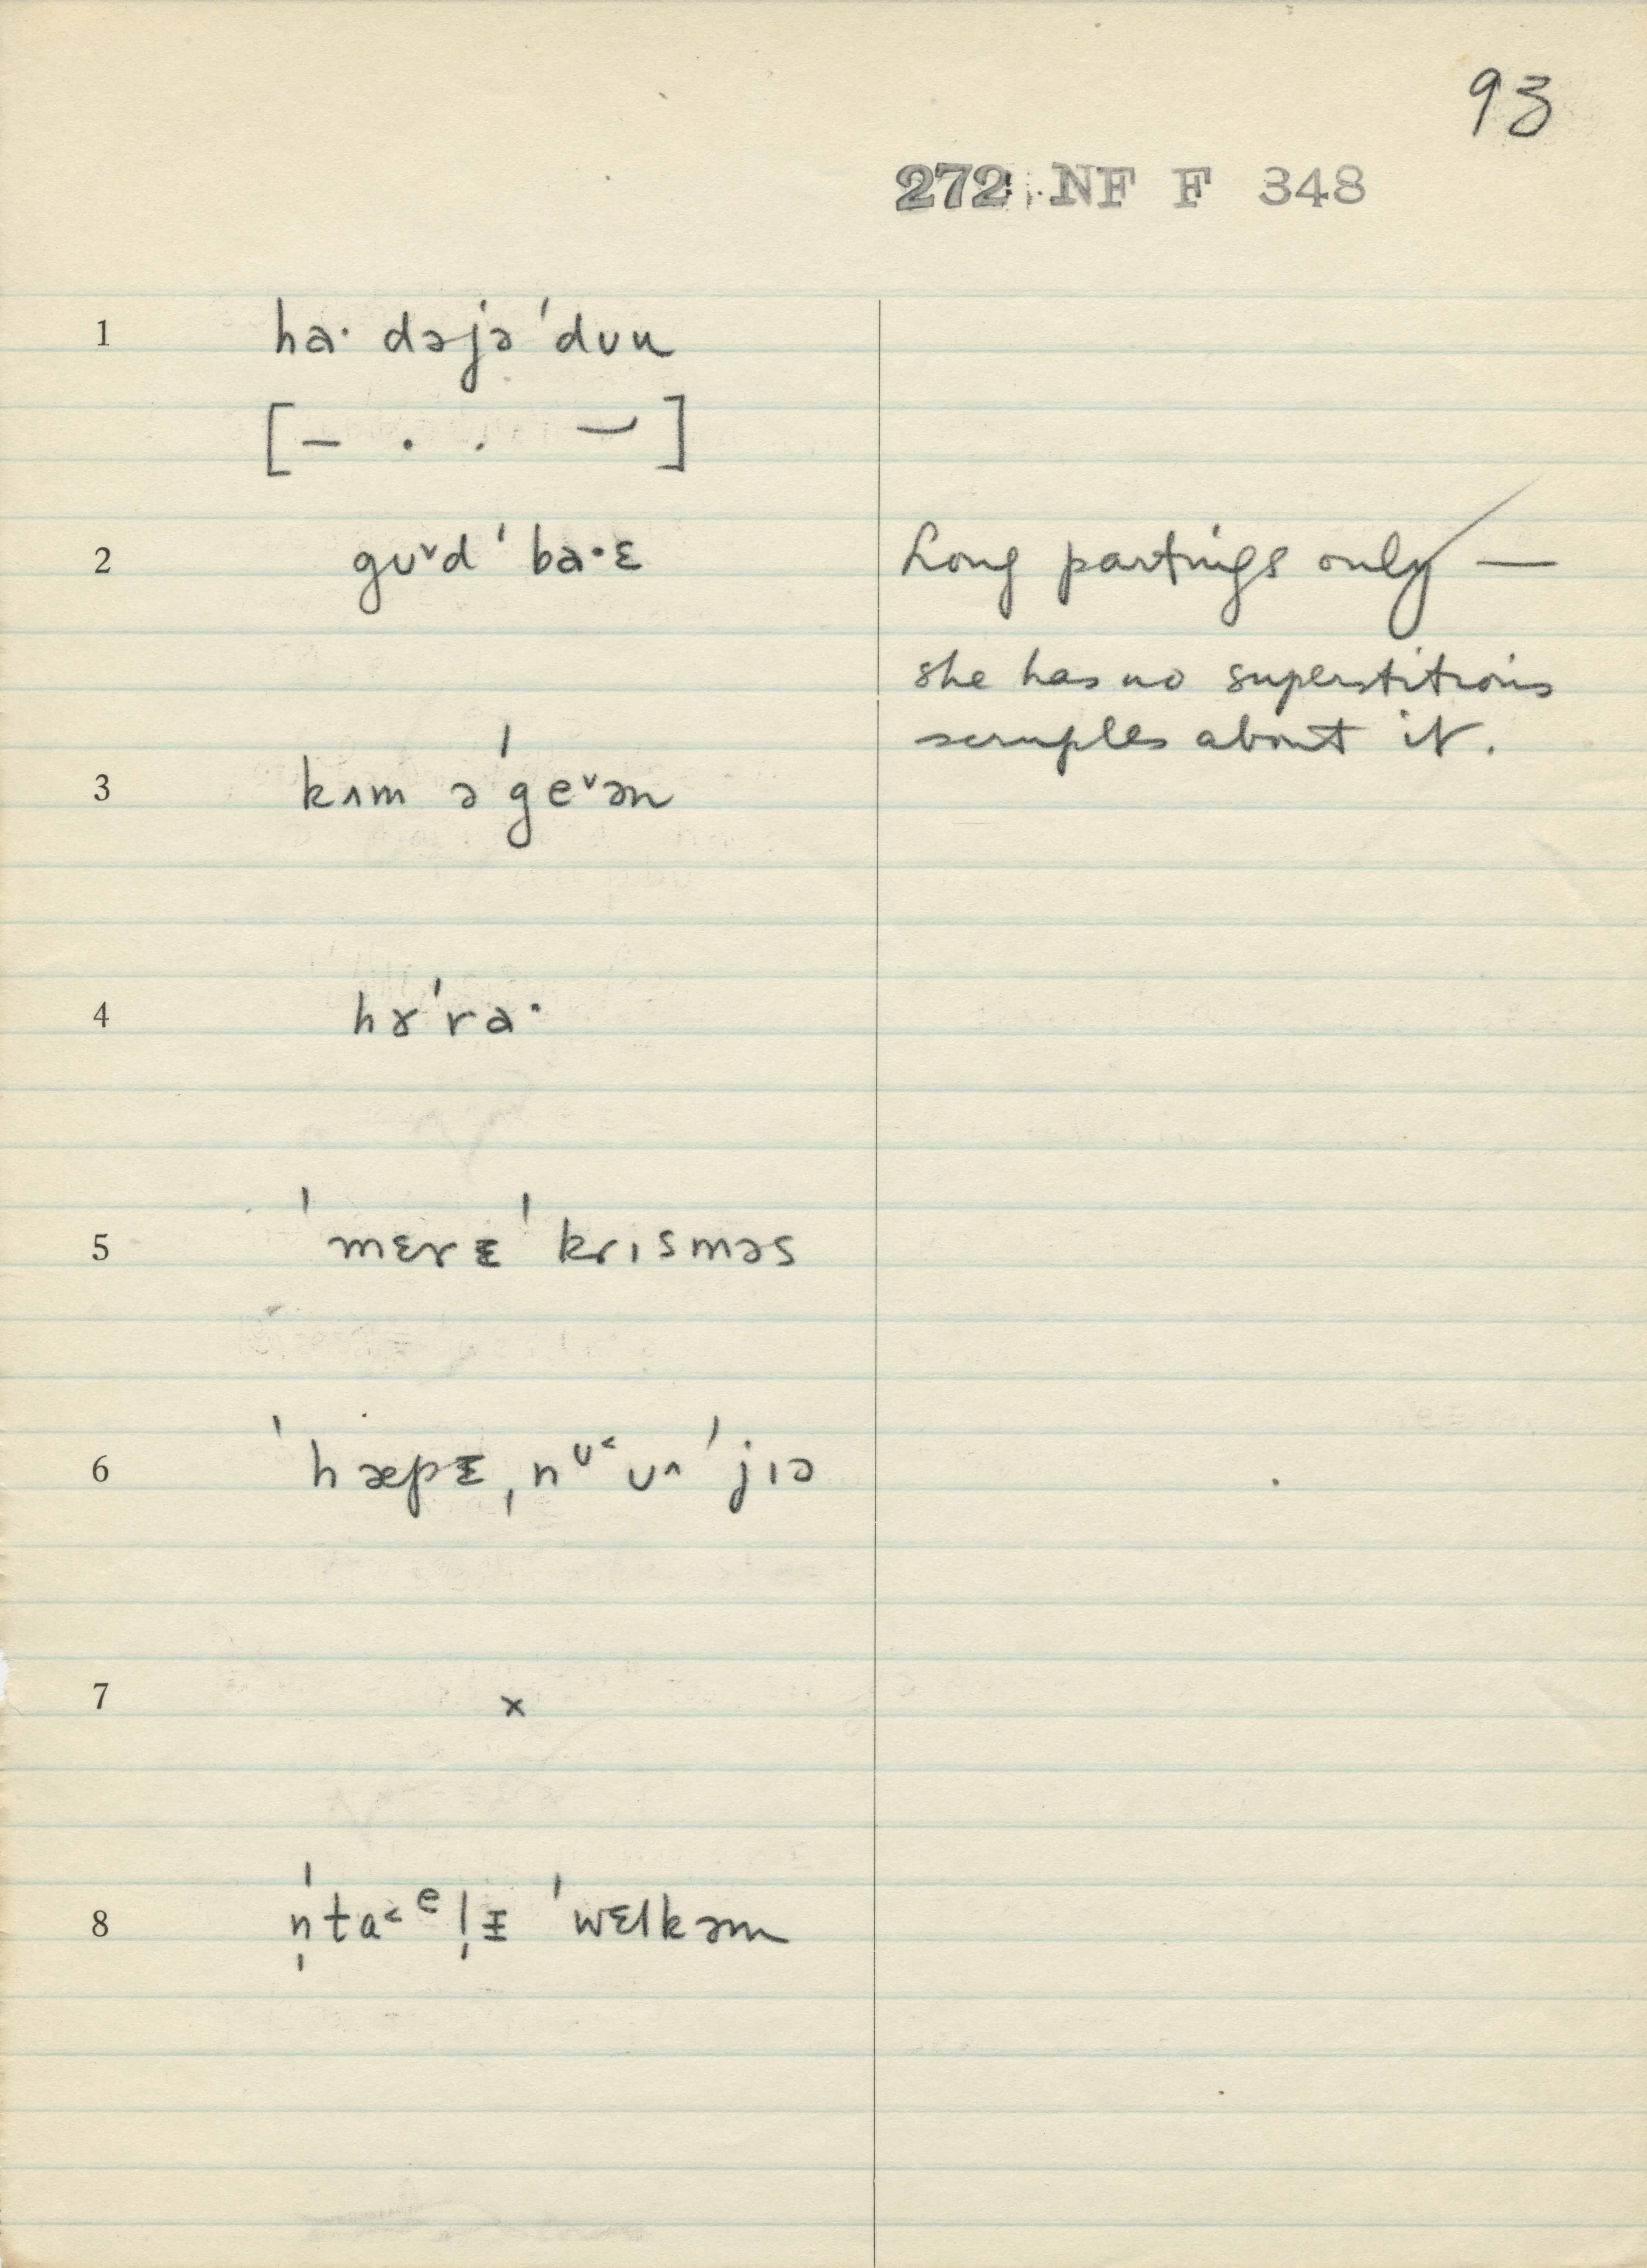 93
272 NF F 348
1 haˑ dəjə ˈdʊu
[– . . –]
2 gʊ˅d ˈbaˑɛ Long partings only —
she has no superstitious
scruples about it.
3 kʌm əˈge˅ən
4 hɤˈraˑ
5 ˈmɛrᵻ ˈkrɪsməs
6 ˈhæpᵻ ˌnᶷ˂ʊ˄ ˈjɪə
7 x
8 ˈn̩ta˂ᵉl̩ᵻ ˈwɛlkəm